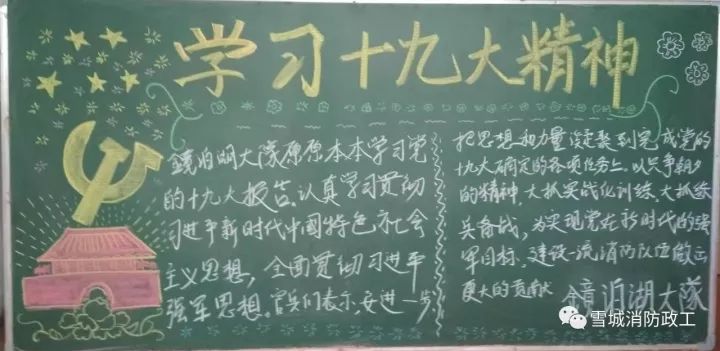 学习十九大精神
镜泊湖大队原原本本学习党
的十九大报告，认真学习贯彻
习近平新时代中国特色社会
主义思想，全面贯彻习近平
强军思想。官兵们表示，要进一步
把思想和力量凝聚到完成党的
十九大确定的各项任务上。以只争朝夕
的精神，大抓实战化训练、大抓练
兵备战，为实现党在新时代的强
军目标，建设一流消防队伍做出
更大的贡献
镜泊湖大队
雪城消防政工